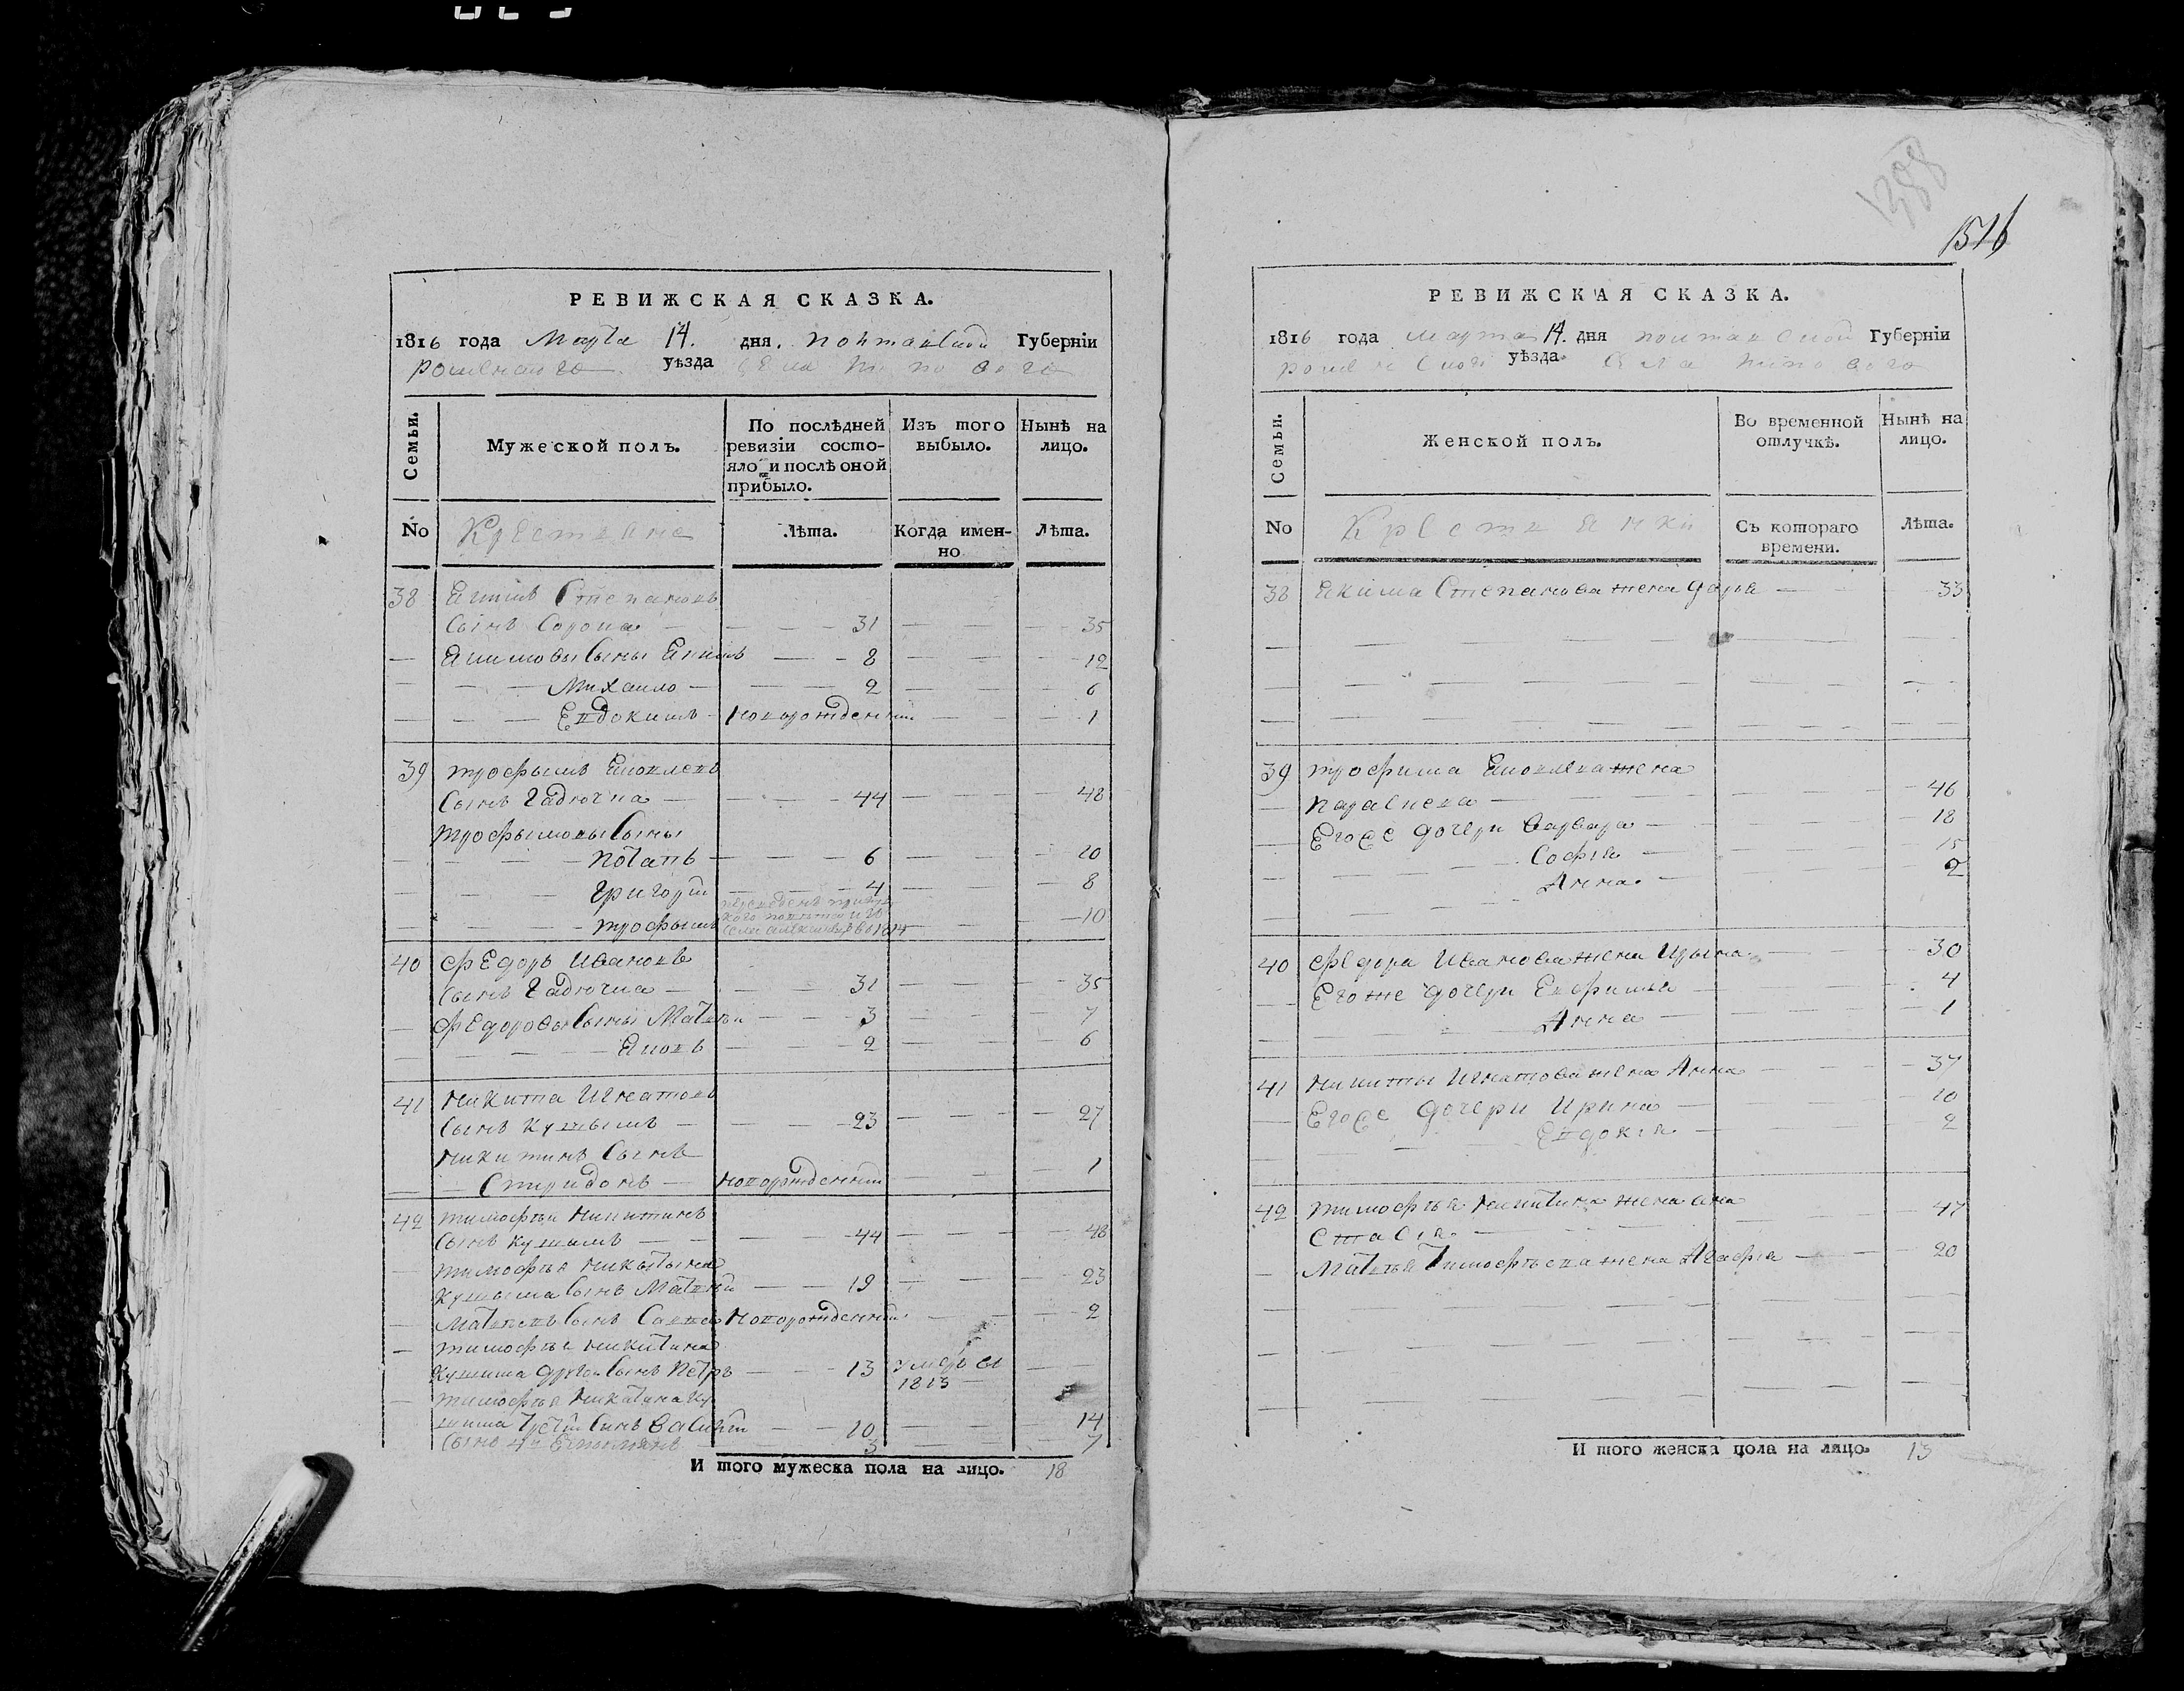 РЕВИЖСКАЯ СКАЗКА.
1816 года Марта 14. дня. Полтавской Губернїи
роменского уѣзда села
Семьи.
Мужеской полъ.
По послѣдней ревизїи состояло и послѣ оной прибыло.
Изъ того выбыло.
Нынѣ на лицо.
No Крестяне Лѣта. Когда именно Лѣта.
38 Екимъ Степановъ
сынъ Сорока — 31 — 35
— Екимовы сыны Екимъ — 8 — 12
— Михаило — 2 — 6
— Евдокимъ — новорожденний — 1
39 трофымъ Яковлевъ
сынъ Гадючка — 44 — 48
трофымовы сыны
— Потапъ — 6 — 10
— Григорий — 4 — 8
— трофымъ — 10
40 Федоръ Ивановъ
сынъ Гадючка — 31 — 35
— Федоровы сыны Матвѣи — 3 — 7
— Яковъ — 2 — 6
41 Никита Игнатовъ
сынъ — 23 — 27
Никитинъ сынъ
— Спиридонъ — новорожденний — 1
42 тимофѣи Никитинъ
сынъ — 44 — 48
— тимофѣя Никытына
сынъ Матвѣй — 19 — 23
— Матвеевъ сынъ Савва новорожденний — 2
— тимофѣя Никитина
другой сынъ Петръ — 13 умеръ
1813
— тимофѣя Никитина
третий сынъ Василий — 10 — 14
сынъ 4й — 3 — 7
И того мужеска пола на лицо. 18
1388
1516
РЕВИЖСКАЯ СКАЗКА.
1816 года марта 14. дня полтавской Губернїи
роменской уѣзда села
Семьи.
Женской полъ.
Во временной отлучкѣ.
Нынѣ на лицо.
No Крестянки Съ котораго времени. Лѣта.
38 Екима Степанова жена Дарья — 33
39 трофима Яковлева жена
— Параскева — 46
— Его же дочери Варвара — 18
— София — 15
— Анна. — 2
40 Федора Иванова жена Ирына — 30
— Его же дочери Ефимия — 4
— Анна — 1
41 Никиты Игнатова жена Анна — 37
— Его же дочери Ирина — 10
— Евдокия — 2
42 тимофѣя Никитина жена ана
стасия. — 47
— Матвѣя Тимофѣева жена Агафия — 20
И того женска пола на лицо. 13